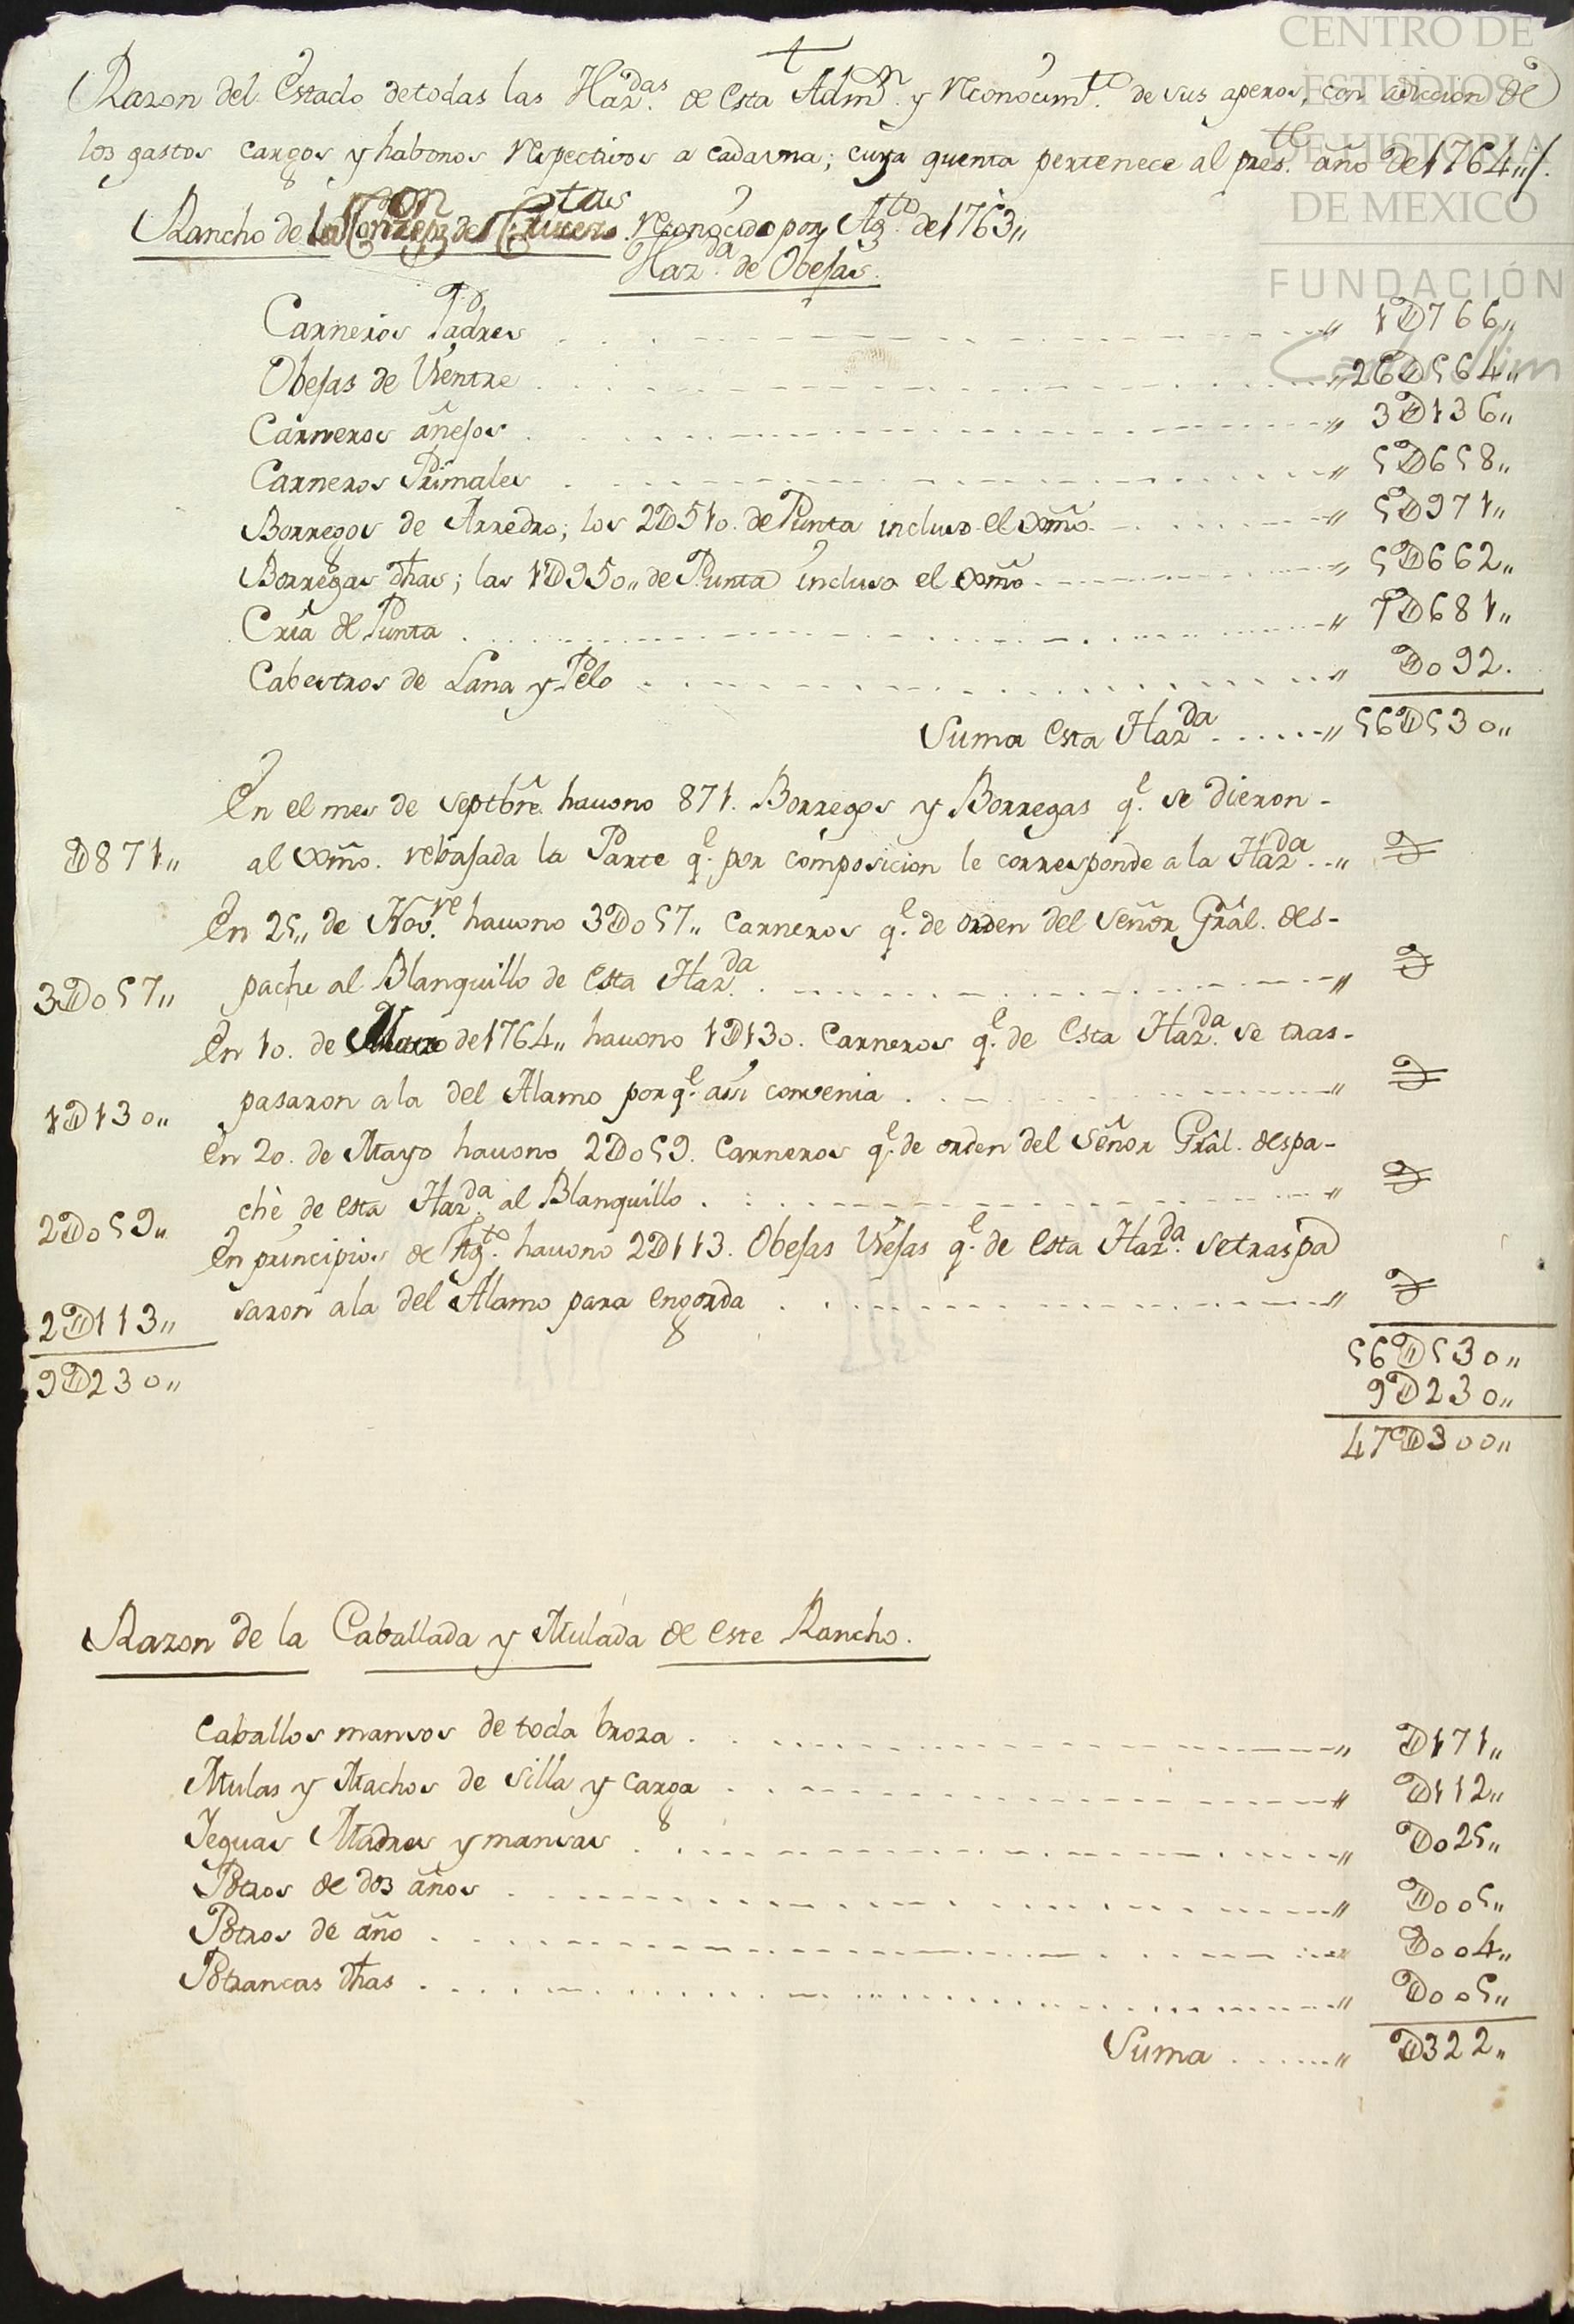 CENTRO DE
ESTUDIOS
DE HISTORIA
DE MEXICO
FUNDACIÓN
Carlos Slim
Razon del Estado de todas las Haz.das de esta Adm.n y reconocim.to de sus aperos, con adiccion de
los gastos cargos y habonos respectivos a cada una; cuya quenta pertenece al pres.te año de 1764,,/.
Rancho de reconocido por Ag.to de 1763,,
Haz.da de Obejas.
Carneros Padres ,, 1D766,,
Obejas de Vientre ,, 26D564,,
Carneros añejos ,, 3D136,,
Carneros Primales ,, 5D658,,
Borregos de Arredro; los 2D510. de Punta incluso el Dmõ. ,, 5D971,,
Borregas dhas; las 1D950,, de Punta incluso el Dmõ. ,, 5D662,,
Cria de Punta ,, 7D681,,
Cabestros de Lana y Pelo ,, D092.
Suma esta Haz.da ,, 56D530,,
En el mes de Septbrẽ havono 871. Borregos y Borregas q.e se dieron-
D871,, al Dmõ. rebajada la Parte q.e por composicion le corresponde a la Haz.da ,, D
En 25,, de Nov.re havono 3D057,, Carneros q.e de orden del Señor Grãl. des-
3D057,, pache al Blanquillo de esta Haz.da ,, D
En 10. de Marzo de 1764,, havono 1D130. Carneros q.e de esta Haz.da se tras-
1D130,, pasaron a la del Alamo por q.e assi convenia ,, D
En 20. de Mayo havono 2D059. Carneros q.e de orden del Señor Grãl. despa-
2D059,, chè de esta Haz.da al Blanquillo ,, D
En principios de Ag.to havono 2D113. Obejas Viejas q.e de esta Haz.da se traspa
2D113,, saron a la del Alamo para engorda ,, D
9D230,,
56D530,,
9D230,,
47D300,,
Razon de la Caballada y Mulada de este Rancho.
Caballos mansos de toda broza ,, D171,,
Mulas y Machos de silla y carga ,, D112,,
Yeguas Madres y mansas ,, D025,,
Potros de dos años ,, D005,,
Potros de año ,, D004,,
Potrancas dhas ,, D005,,
Suma ,, D322,,